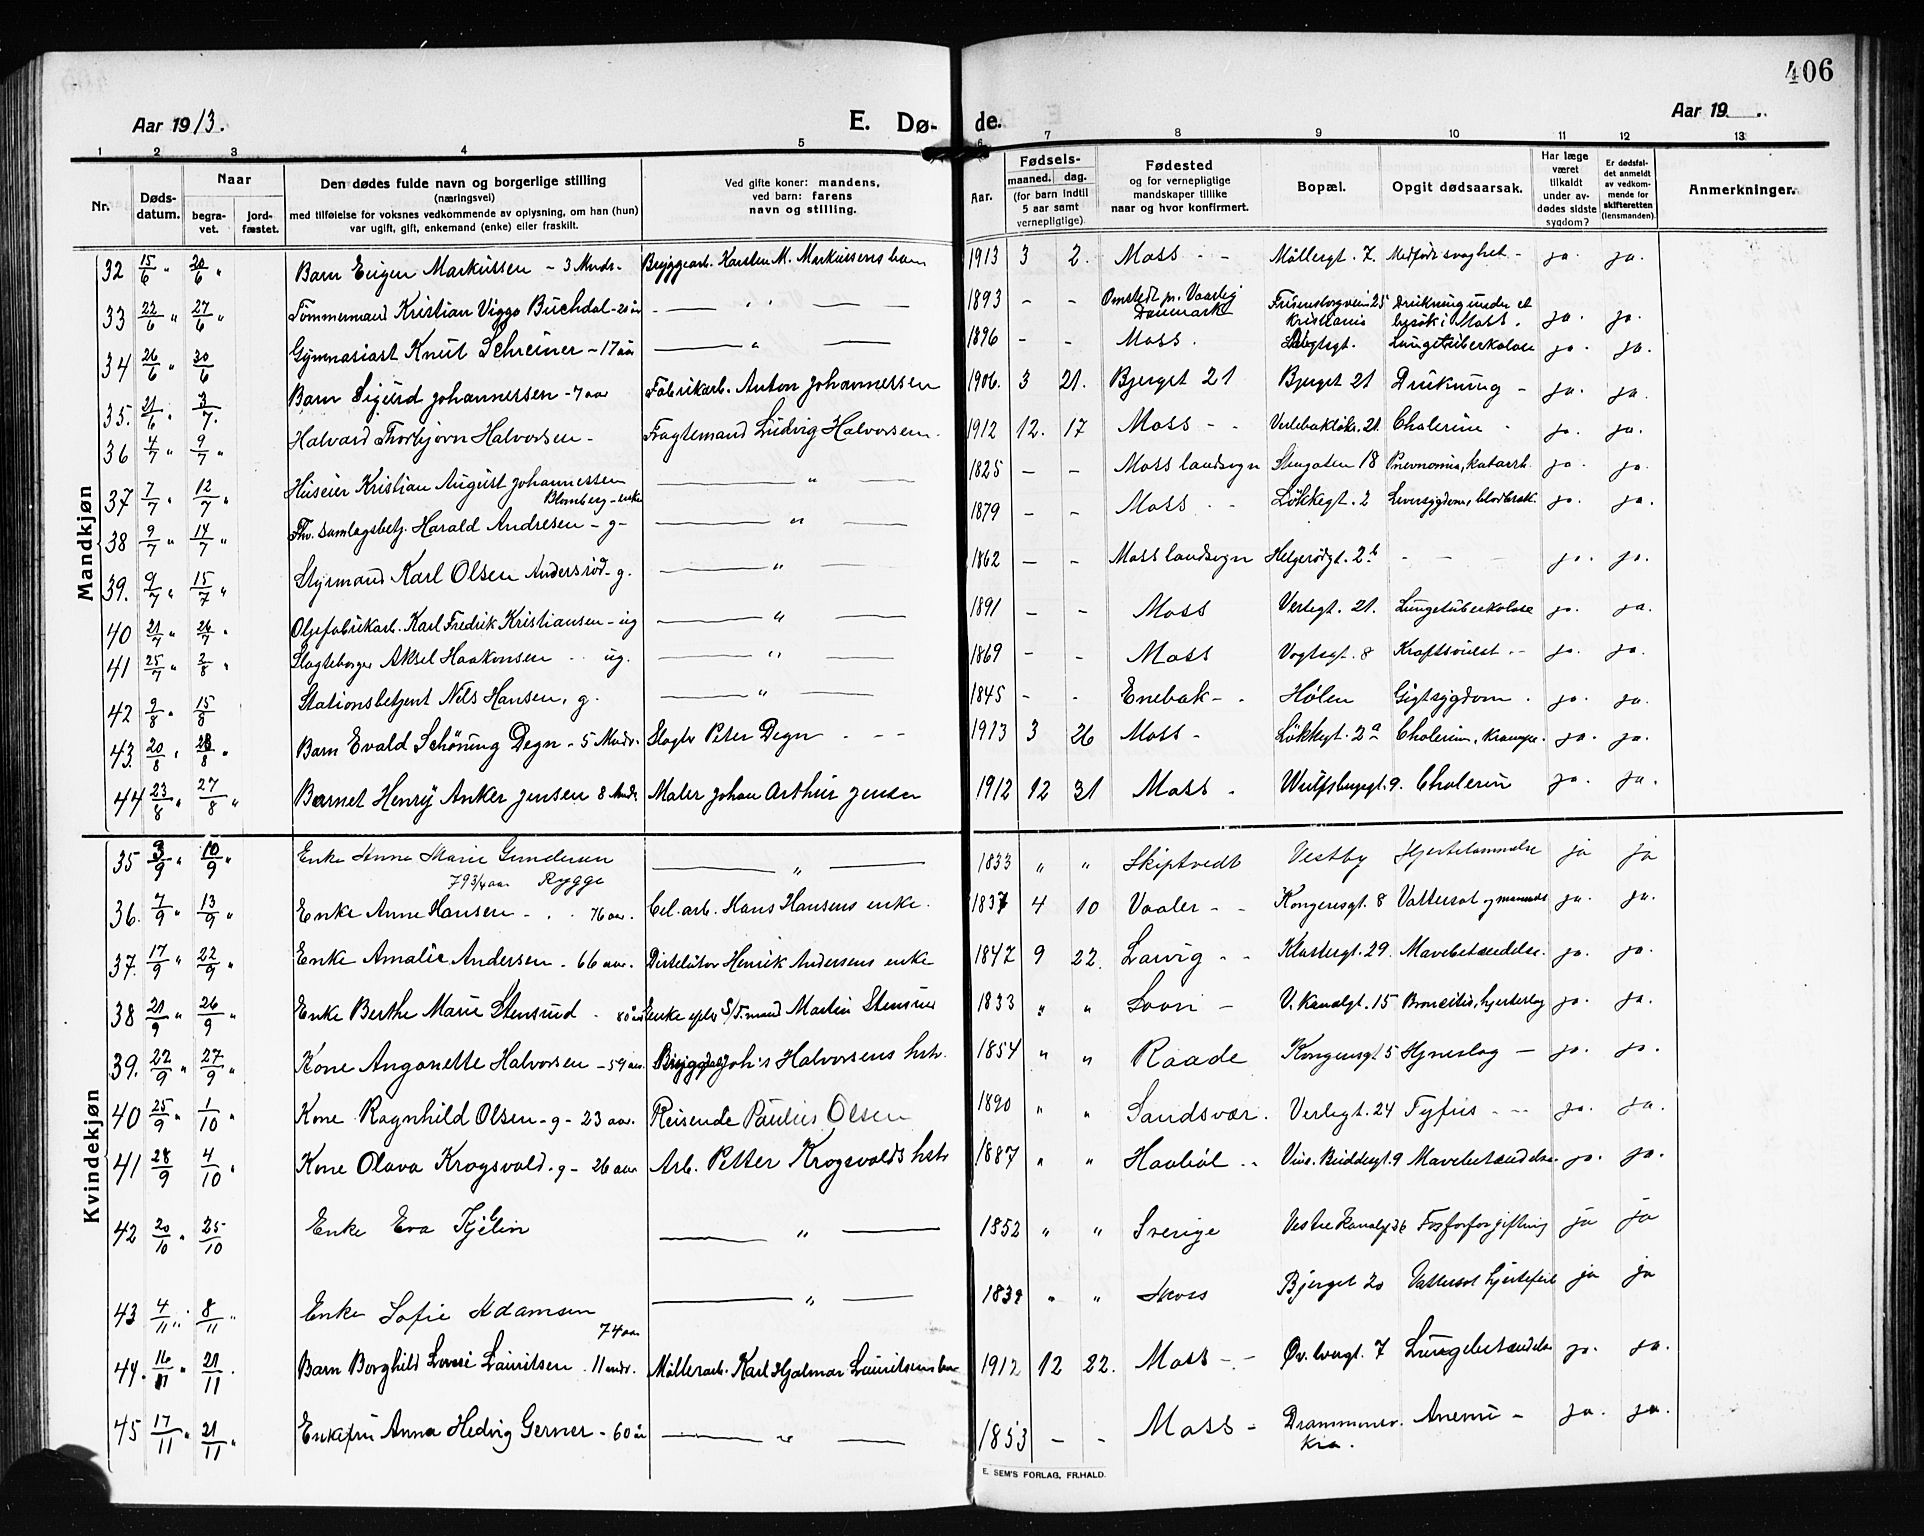 406
Aar 1913.
E. Dø-
de.
Aar 19
1 2 3 4 5 6 7 8 9 10 11 12 13
Nr.
Døds-
datum.
Naar
begra-
vet.
jord-
fæstet.
Den dødes fulde navn og borgerlige stilling
(næringsvei)
med tilføielse for voksnes vedkommende av oplysning, om han (hun)
var ugift, gift, enkemand (enke) eller fraskilt.
Ved gifte koner: mandens,
ved barn: farens
navn og stilling.
Aar.
Fødsels-
maaned. dag.
(for barn indtil
5 aar samt
vernepligtige)
Fødested
og for vernepligtige
mandskaper tillike
naar og hvor konfirmert.
Bopæl.
Opgit dødsaarsak.
Har læge
været
tilkaldt
under av-
dødes sidste
sygdom?
Er dødsfal-
det anmeldt
av vedkom-
mende for
skifteretten
(lensmanden).
Anmerkninger.
Mandkjøn
32 15/6 " 20/6 " Barn Eugen Markussen - 3 Mndr. Bryggearb. Karsten M. Markussens barn 1913 3 2. Moss - - Møllergt. 7. Medfødt svaghet - ja. ja.
33 22/6 " 27/6 " Tømmermand Kristian Viggo Buchdal - 20 år - — " — 1893 - - Omstedt pr. Vaarlej Danmark Frisensborgvein 25 Kristiania Drukning under et besøk i Moss. ja. ja.
34 26/6 " 30/6 Gymnasiast Knut Schreiner - 17 aar — " — 1896 - - Moss. Vogtsgt. Lungetuberkolose ja. ja.
35. 21/6 . 3/7. Barn Sigurd Johannessen - 7 aar Fabrikarb. Anton Johannessen 1906. 3 21. Bjerget 21 Bjerget 21 Drukning - ja. ja.
36 4/7 " 9/7 " Halvard Thorbjørn Halvorsen - Fragtemand Ludvig Halvorsen. 1912 12. 17 Moss - - Verlebakløk. 21. Cholerine - ja. ja.
37 7/7 " 12/7 " Huseier Kristian August Johannessen Blomberg - enke — " — 1825 - - Moss landsogn Stengaten 18 Pnevnomia, katarrh. ja. ja.
38 9/7 " 14/7 " Fhv. Samlagsbetj. Harald Andresen - g - — " — 1879 - - Moss - - Løkkegt. 2 Leversygdom, blodbræk. ja. ja.
39. 9/7 " 15/7 " Styrmand Karl Olsen Andersrød - g. — " — 1862 - - Moss landsogn Helgerødgt. 2b - - - ja. ja.
40 21/7 " 26/7 " Oljefabrikarb. Karl Fredrik Kristiansen - ug — " — 1891 - - Moss Verlegt. 21. Lungetuberkolose ja. ja.
41 25/7 " 2/8 " Slagteborger Aksel Haakonsen - - ug. — " — 1869 - - Moss Vogtsgt. 8 Kræftsvulst - - ja. ja.
42 9/8 " 15/8 Stationsbetjent Nels Hansen, g. — " — 1845 - - Enebak - - Hølen Gigtsygdom. ja. ja.
43. 20/8 " 28/8 " Barn Evald Schøning Degn - 5 Mndr. Slagter Peter Degn - - - 1913 3 26 Moss - Løkkegt. 2a Cholerine, Krampe. ja. ja.
44 23/8 " 27/8 " Barnet Henry Anker Jensen 8 Mndr. Maler Johan Arthur Jensen 1912 12 31 Moss - Wulfsbergt. 9. Cholerin ja. ja.
Kvindekjøn
35 3/9 " 10/9 " Enke Anne Marie Gundersen 79 3/4 aar Rygge — " — 1833 " " Skiptvedt Vestby Hjertelammelse ja ja
36. 7/9 " 13/9 " Enke Anne Hansen - . . 76 aar. Cel. arb. Hans Hansens enke. 1837 4 10 Vaaler - - Kongensgt. 8 Vattersot ja. ja.
37. 17/9 " 22/9 " Enke Amalie Andersen - 66 aar. Distelatør Henrik Andersens enke 1847 9 22. Larvig - - Klostergt. 29. Mavebetændelse. ja. ja.
38 21/9 " 26/9 " Enke Berthe Marie Stensrud - 80 år Enke efter Martin Stensrud 1833 " " - V. Kanalgt. 15 Broncitis, hjerteslag ja. ja.
39. 22/9 " 27/9 " Kone Anganette Halvorsen - 59 aar. Joh's Halvorsens hstr. 1854 " " Raade Kongensgt 5 Hjneslag - ja. ja.
40 25/9 " 1/10 " Kone Ragnhild Olsen - g - 23 aar. Reisende Paulus Olsen 1890 " " Sandsvær. Verlegt. 24 Tyfus - - - ja. ja.
41 28/9 4/10 " Kone Olava Krogsvold. g - 26 aar Arb. Petter Krogsvolds hstr 1887 " " Haabøl - - Vinc. Buddesgt. 9 Mavebetændelse ja. ja.
42 20/10 " 25/10 Enke Eva Kjelin — " — 1852 " " Sverige Vestre Kanalgt 36 Fosforforgiftning ja ja
43 4/11 " 8/11 " Enke Sofie Adamsen 74 aar — " — 1839 " " Moss Bjerget 20 Vattersot hjertefeil ja ja
44. 16/11 " 21/11 . Barn Borghild Lovise Lauritsen. 11 mdr. Møllerarb. Karl Hjalmar Lauritsens bar 1912 12 22. Moss - - Øv. torvgt. 7 Lungebetændelse ja. ja.
45 17/11 " 21/11 " Enkefru Anna Hedvig Gerner - 60 år — " — 1853 - - Moss - Drammensv. Kra. Anemi - ja. ja.
E. SEM'S FORLAG, FR.HALD.